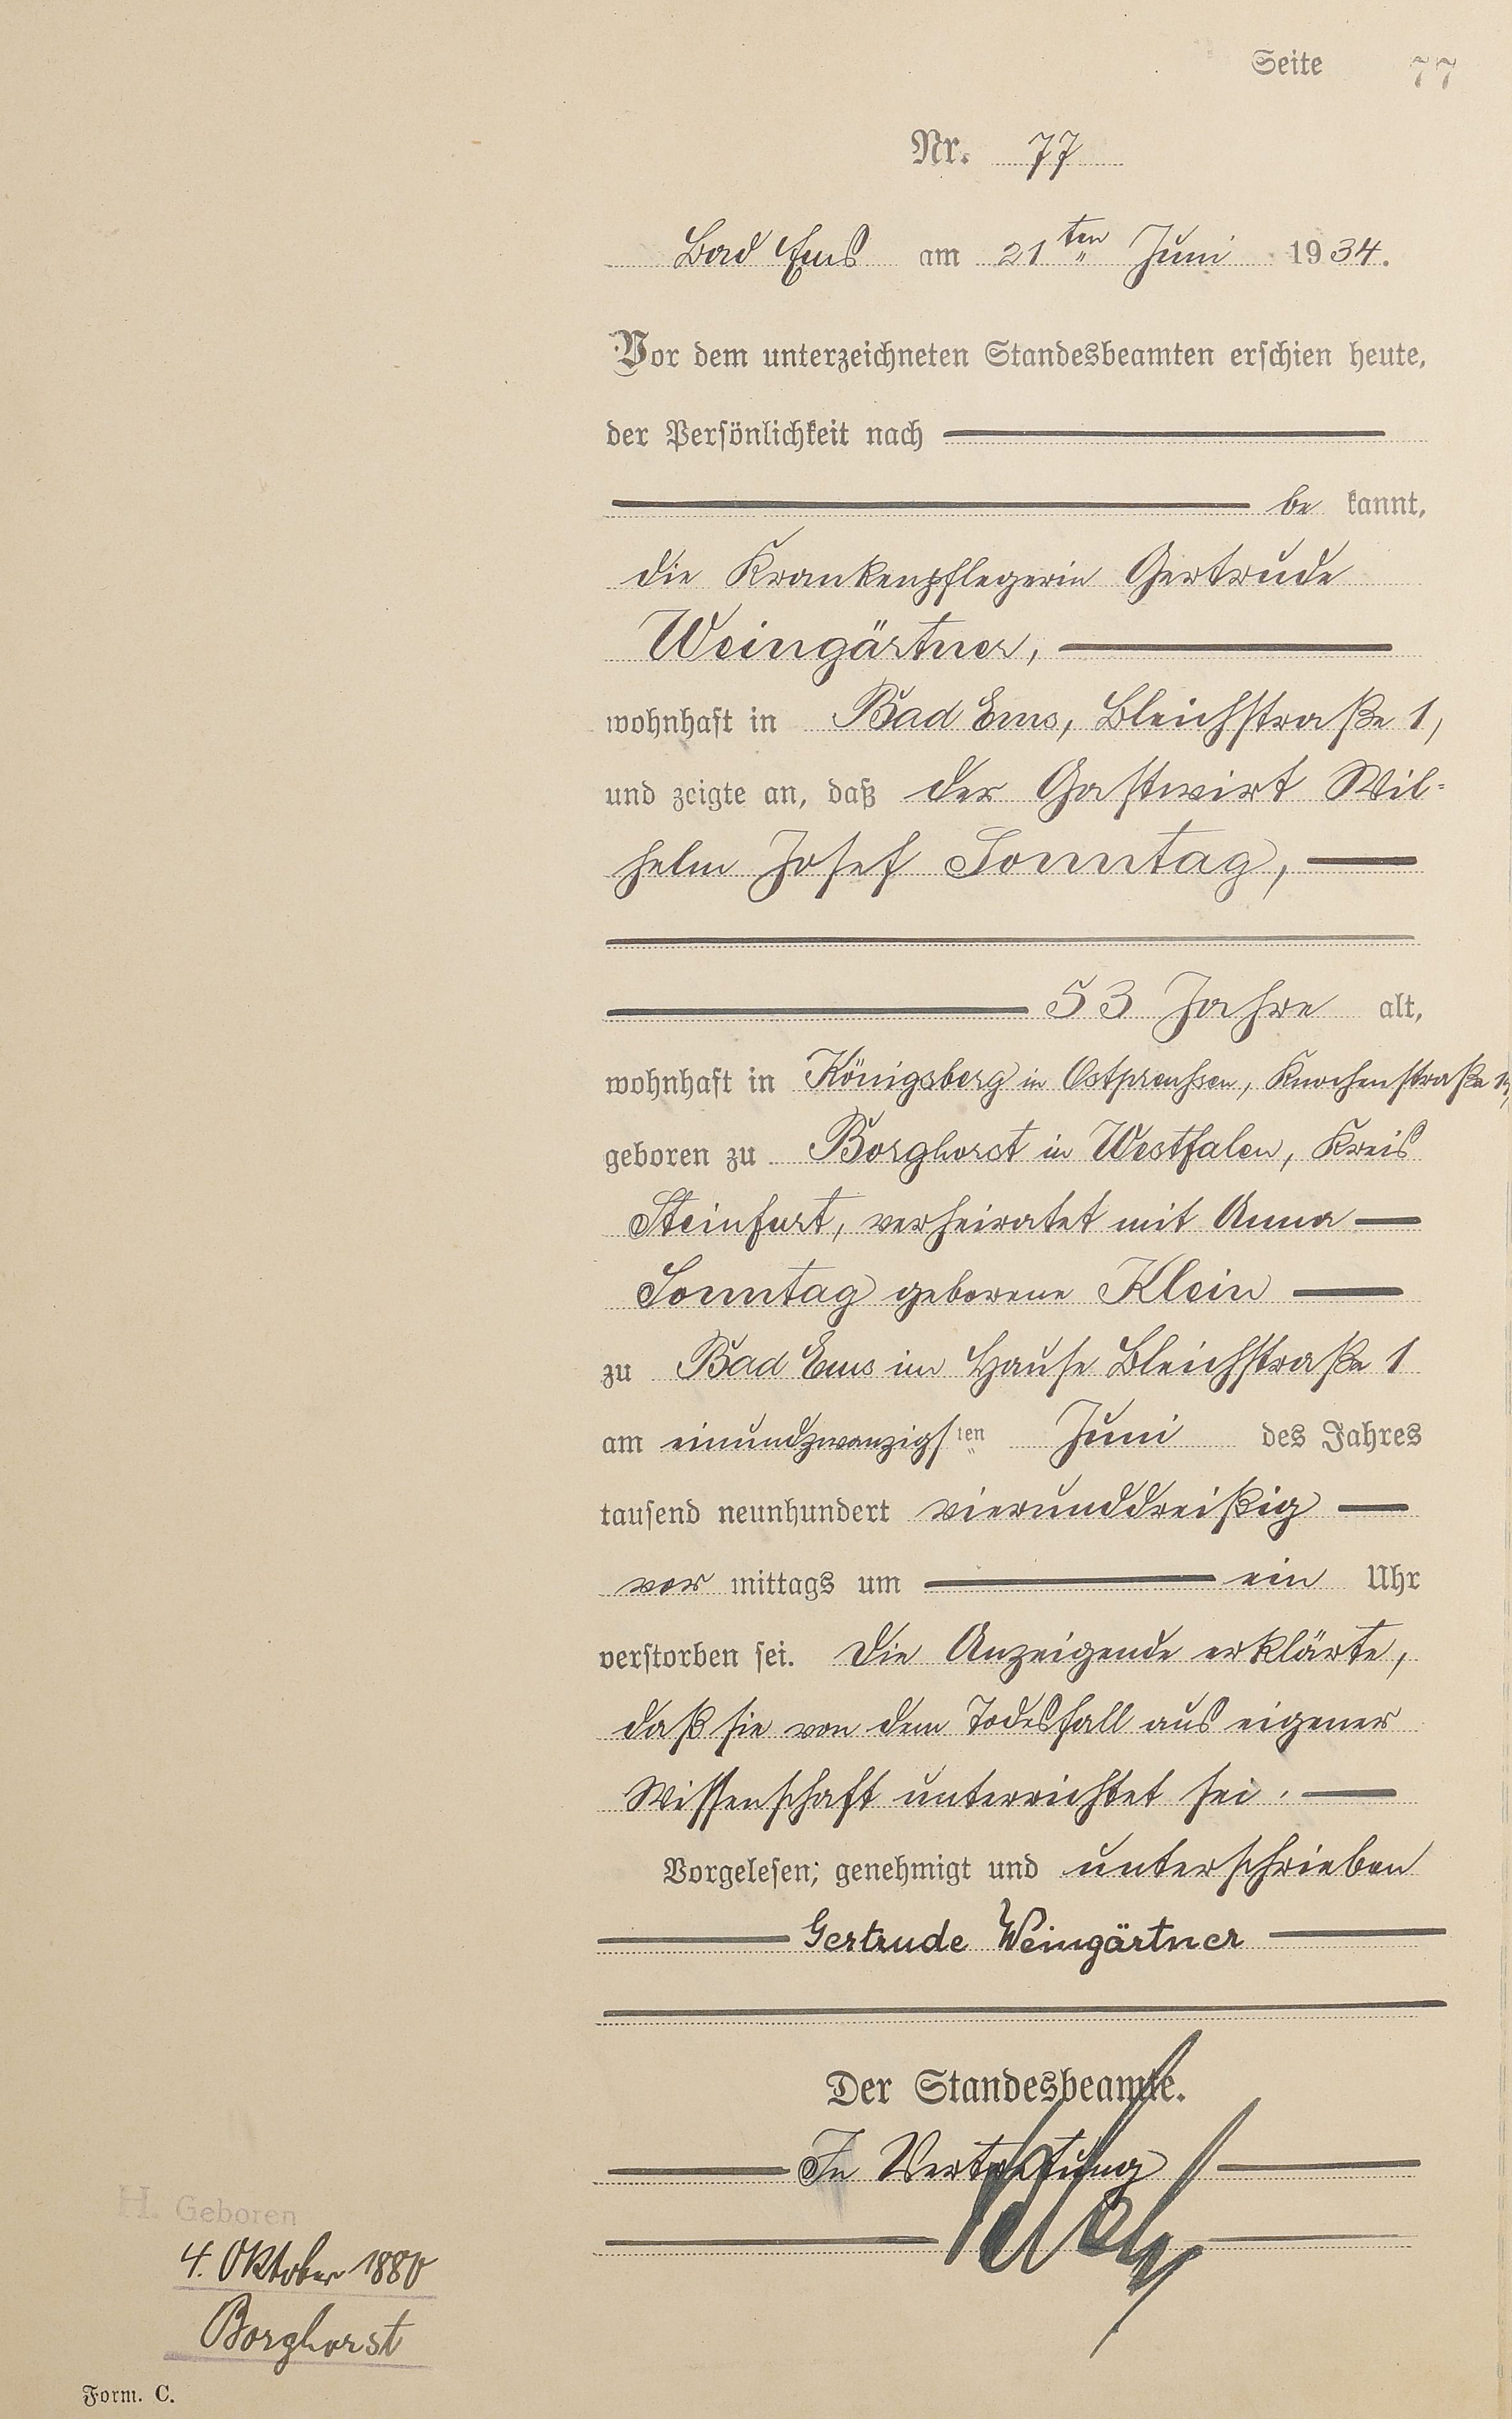 Seite 77
Nr. 77
Bad Ems am 21ten Juni 1934.
Vor dem unterzeichneten Standesbeamten erschien heute,
der Persönlichkeit nach
be kannt,
die Krankenpflegerin Gertrude
Weingärtner,
wohnhaft in Bad Ems, Bleichstraße 1,
und zeigte an, daß der Gastwirt Wil-
helm Josef Sonntag,
53 Jahre alt,
wohnhaft in Königsberg in Ostpreußen, Knochenstraße
geboren zu Borghorst in Westfalen, Kreis
Steinfurt, verheiratet mit Anna
Sonntag geborene Klein
zu Bad Ems im Hause Bleichstraße 1
am einundzwanzigsten Juni des Jahres
tausend neunhundert vierunddreißig
vor mittags um ein Uhr
verstorben sei. Die Anzeigende erklärte,
daß sie von dem Todesfall aus eigener
Wissenschaft unterrichtet sei.
Vorgelesen, genehmigt und unterschrieben
Gertrude Weingärtner
Der Standesbeamte.
In Vertretung
H. Geboren
4. Oktober 1880
Borghorst
Form. C.